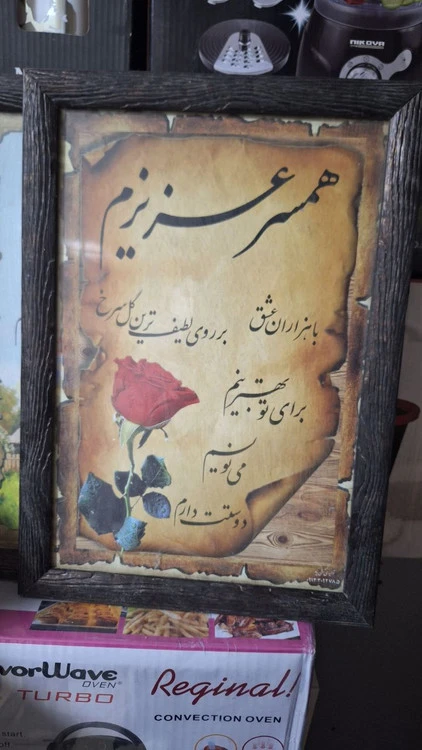 NIKOVA
همسر عزیزم
با هزاران عشق بر روی لطیف ترین گل سرخ
برای تو بهترینم
می نویسم
دوستت دارم
vorWave
OVEN
TURBO
Reginal!
CONVECTION OVEN
start.